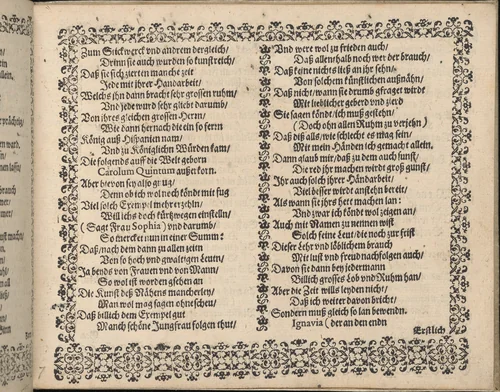 Zum Stickwerck und andrem dergleich/
Drinn sie auch wurden so kunstreich/
Daß sie sich zierten manche zeit
Jede mit ihrer Handarbeit/
Welchs ihn dann bracht sehr grossen ruhm/
Und jede wurd sehr gliebt darumb/
Von ihres gleichen grossen Herrn/
Wie dann hernach die ein so fern
König auß Hispanien nam/
Und zu Königlichen Würden kam/
Die folgends auff die Welt geborn
Carolum Quintum außerkorn.
Aber hievon sey also gnug/
Denn ob ich wol noch köndt mit fug
Viel solch Exempel mehr erzehln/
Will ichs doch kürtzwegen einstelln/
( Sagt Frau Sophia ) und darumb/
So mercket nun in einer Summ:
Daß/ nach dem dann zu allen zeitn
Von so hoch und gwaltigen Leutn/
Ja bends von Frauen und von Mann/
So wol ist worden gsehen an
Die Kunst deß Nähens mancherley/
Man wol mag sagen ohn schew/
Daß billich dem Exempel gut
Manch schöne Jungfrau folgen thut/
Und were wol zu frieden auch/
Daß allenthalb noch wer der brauch/
Daß keine nichts ließ an ihr sehn/
Von solchem künstlichen außnähn/
Daß nicht/ wann sie drumb gfraget wirdt
Mit lieblicher geberd und zierd
Sie sagen köndt/ ich muß gestehn/
( Doch ohn allen Ruhm zu verjehn )
Daß diß alls/ wie schlecht es mag sein/
Mit mein Händen ich gemacht allein,
Dann glaub mir/ daß zu dem auch sunst/
Die red ihr machen wirdt groß gunst/
Ihr auch solch ihrer Händarbeit/
Viel besser wirdt anstehn bereit/
Als wann sie ihrs hett machen lan:
Und zwar ich köndt wol zeigen an/
Auch mit Namen zu nennen wist
Solch seine Leut die noch zur frist
Dieser Lehr und löblichem brauch
Mit lust und freud nachfolgen auch/
Davon sie dann bey jedermann
Billich grosses Lob und Ruhm han/
Aber die Zeit wills leyden nicht/
Daß ich weiter davon bricht/
Sondern muß gleich so lan bewendn.
Ignavia ( der an den endn
Erstlich